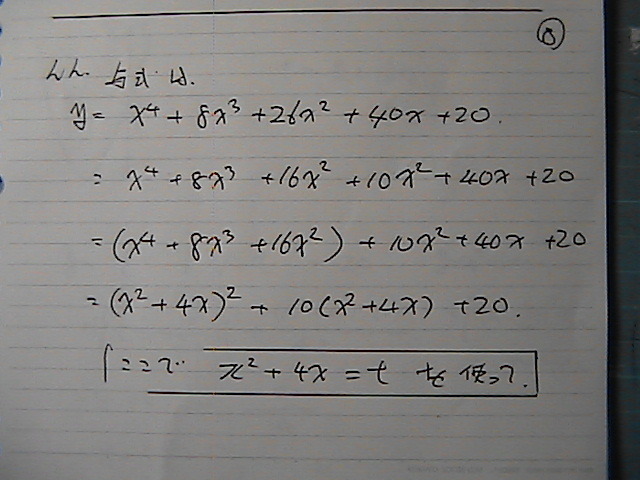 ⑧
んん. 与式は.
y = x⁴ + 8x³ + 26x² + 40x + 20.
= x⁴ + 8x³ + 16x² + 10x² + 40x + 20
= (x⁴ + 8x³ + 16x²) + 10x² + 40x + 20
= (x² + 4x)² + 10(x² + 4x) + 20.
ここで x² + 4x = t を使って.